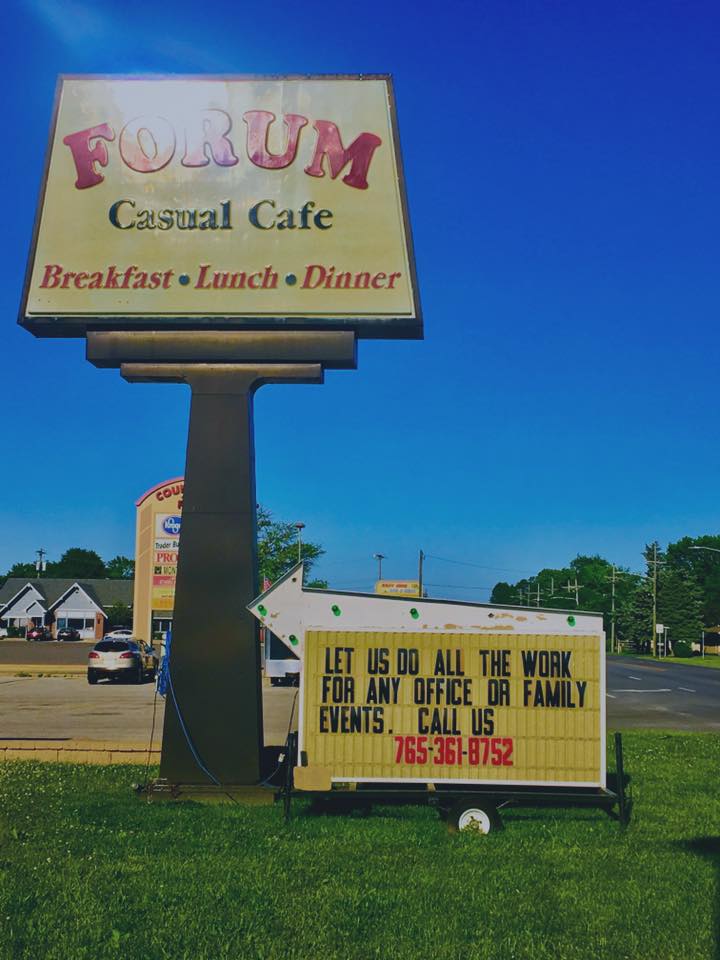 FORUM
Casual Cafe
Breakfast • Lunch • Dinner
Trader
LET US DO ALL THE WORK
FOR ANY OFFICE OR FAMILY
EVENTS. CALL US
765-361-8752